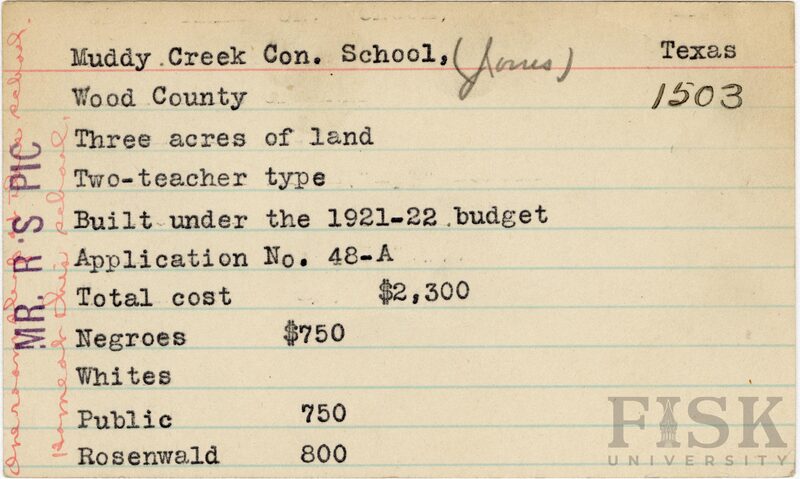 Muddy Creek Con. School, (Jones) Texas
Wood County 1503
Three acres of land
Two-teacher type
Built under the 1921-22 budget
Application No. 48-A
Total cost $2,300
Negroes $750
Whites
Public 750
Rosenwald 800
MR. R'S PIC
school.
this school.
FISK
UNIVERSITY